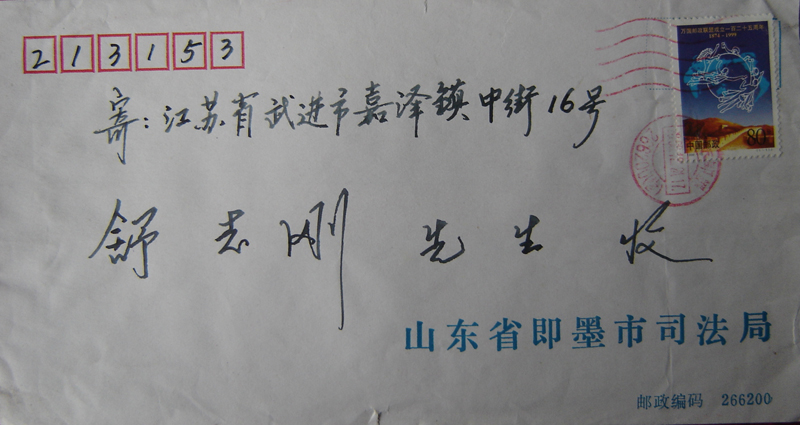 213153
万国邮政联盟成立一百二十五周年
1874-1999
中国邮政
80
寄:江苏省武进市嘉泽镇中街16号
舒志刚 先生 收
山东省即墨市司法局
邮政编码 266200